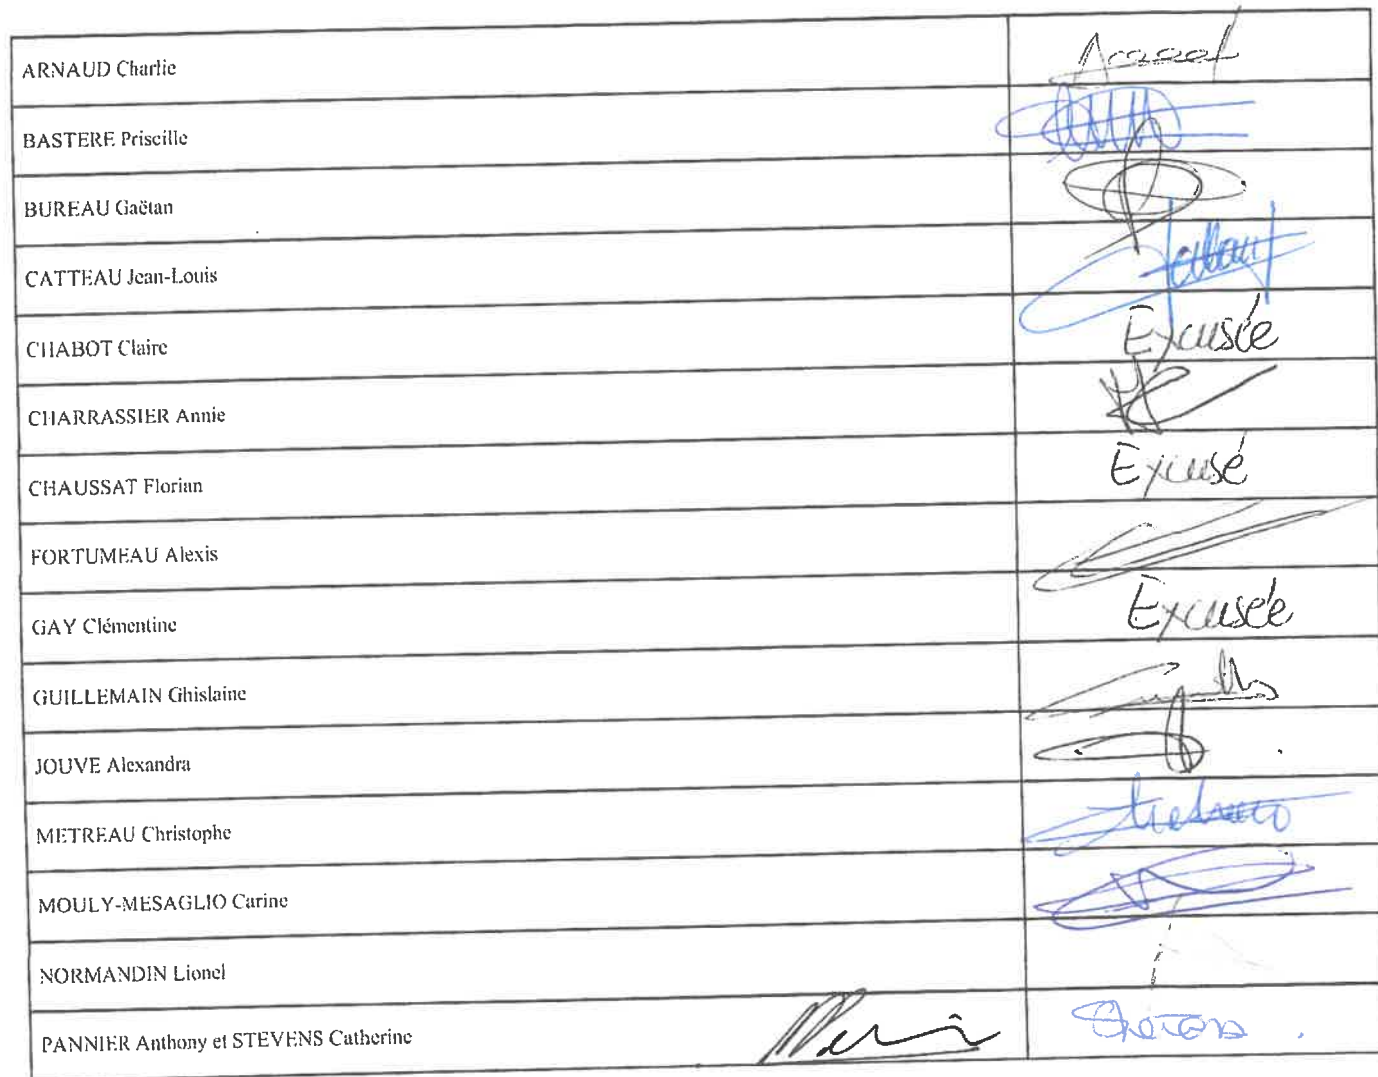 ARNAUD Charlie
BASTERE Priscille
BUREAU Gaëtan
CATTEAU Jean-Louis
CHABOT Claire Excusée
CHARRASSIER Annie
CHAUSSAT Florian Excusé
FORTUMEAU Alexis
GAY Clémentine Excusée
GUILLEMAIN Ghislaine
JOUVE Alexandra
METREAU Christophe
MOULY-MESAGLIO Carine
NORMANDIN Lionel
PANNIER Anthony et STEVENS Catherine